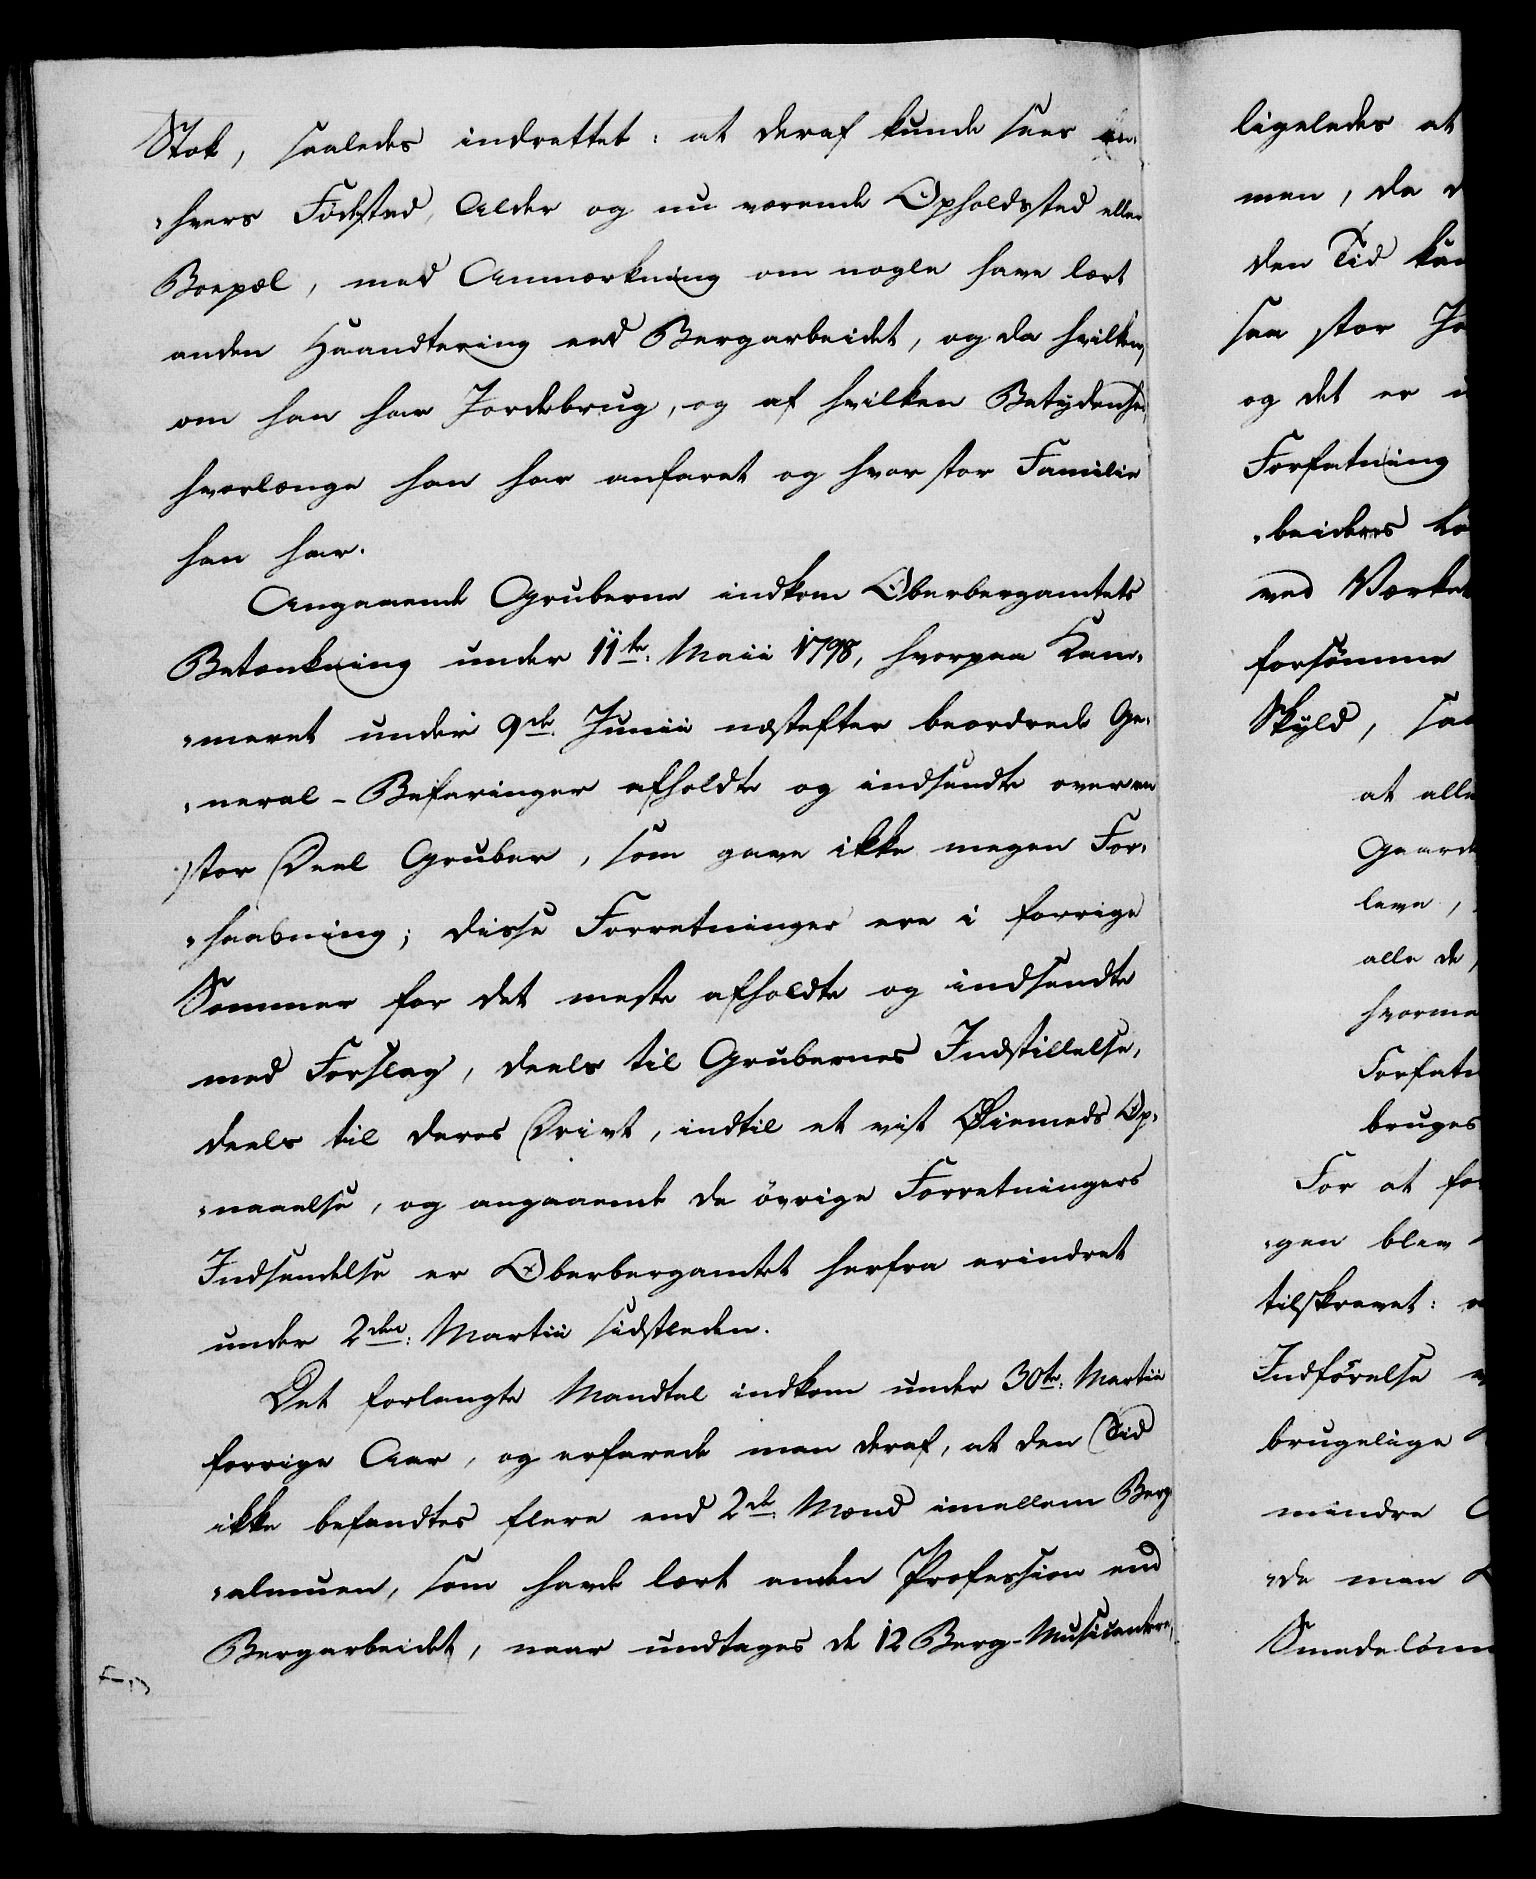 Stok, saaledes indrettet: at deraf kunde sees en-
„hvers Födested, Alder og nu værende Opholdssted eller
Boepæl, med Anmærkning om nogle have lært
anden Haandtering end Bergarbeidet, og da hvilken,
om han har Jordebrug, og af hvilken Betydenhed,
hvorlænge han har anfaret og hvor stor Familie
han har.
Angaaende Gruberne indkom Oberbergamtets
Betænkning under 11te. Maii 1798, hvorpaa Kam-
„meret under 9de. Junii næstefter beordrede Ge-
„neral-Befaringer afholdte og indsendte over en
stor Deel Gruber, som gave ikke megen For-
„haabning; disse Forretninger ere i forrige
Sommer for det meste afholdte og indsendte
med Forslag, deels til Grubernes Indstillelse,
deels til deres Drivt, indtil et vist Øiemeds Op-
„naaelse, og angaaende de övrige Forretningers
Indsendelse er Oberbergamtet herfra erindret
under 2den. Martii sidstleden.
Det forlangte Mandtal indkom under 30te. Martii
forrige Aar, og erfarede man deraf, at den Tid
ikke befandtes flere end 2de. Mænd imellem Berg
„almuen, som havde lært anden Profession end
Bergarbeidet, naar undtages de 12 Berg-Musicantere,
ligeledes at
men, da
den Tid
saa stor
og det er
Forfatning
„beideres
ved Værket
forsömme
Skyld, saa
at alle
Gaarde
leve,
alle de,
hvorme
Forfatn
bruges
For at
„gen blev
tilskrevet:
Indförelse
brugelige
mindre
„de man
Smedelönn